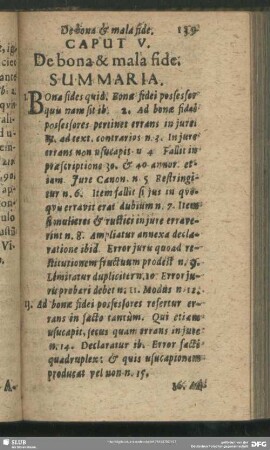 De bona & mala fide. 139
CAPUT V.
De bona & mala fide.
SUMMARIA.
1. Bona fides quid. Bonæ fidei possessor
quis nam sit ib. 2. Ad bonæ fidei
possessores pertinet errans in jure
ad text. contrarios n. 3. In jure
errans non usucapit n. 4 Fallit in
præscriptione 30. & 40 annor. et-
iam Jure Canon. n. 5 Restringi-
tur n. 6. Item fallit si jus in quo
quis erravit erat dubium n. 7. Item
si mulieres & rustici in jure errave-
rint n. 8. Ampliatur annexa decla-
ratione ibid. Error juris quoad re-
stitutionem fructuum prodest n. 9.
Limitatur dupliciter n. 10. Error ju-
ris probari debet n. 11. Modus n. 12.
13. Ad bonæ fidei possessores refertur er-
rans in facto tantùm. Qui etiam
usucapit, secus quam errans in jure
n. 14. Declaratur ib. Error facti
quadruplex: & quis usucapionem
producat vel non n. 15.